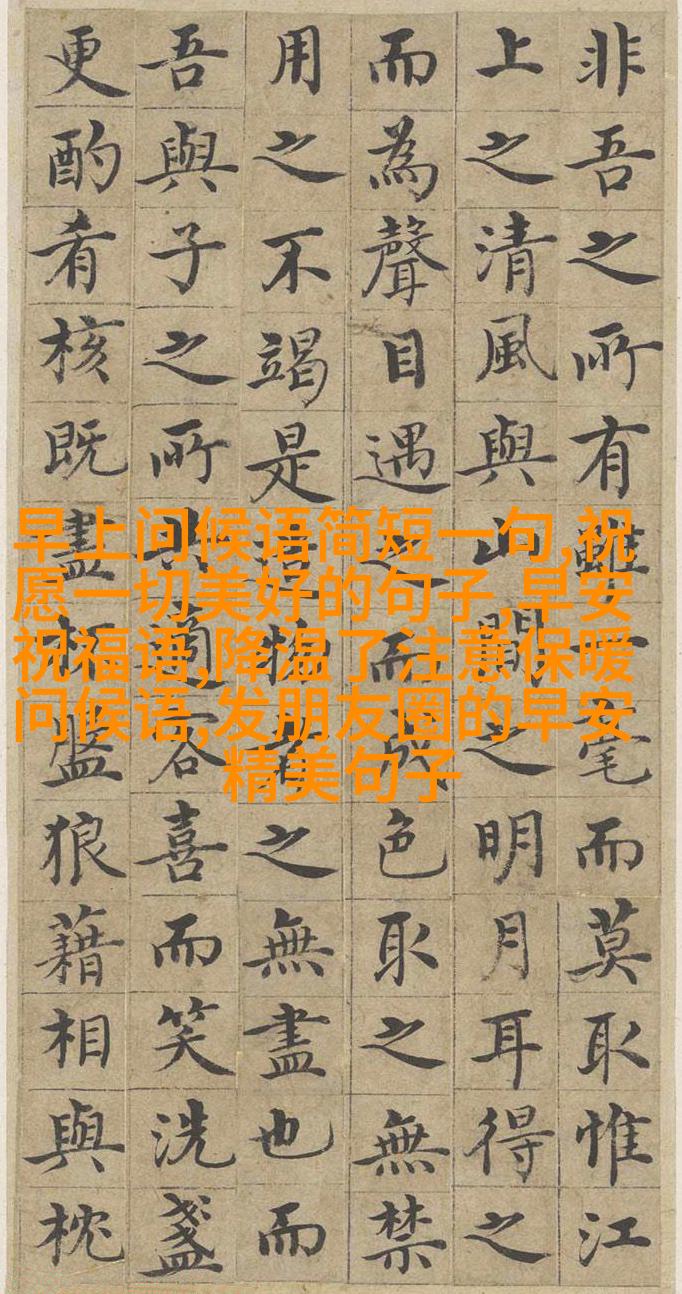 非吾之所有雖一毫而莫取惟江
上之清風與山間之明月耳得之
而為聲目遇之而成色取之無禁
用之不竭是造物者之無盡也而
吾與子之所共適客喜而笑洗盞
更酌肴核既盡杯盤狼藉相與枕
早上问候语简短一句,祝
愿一切美好的句子 早安
祝福语,降温了注意保暖
问候语,发朋友圈的早安
精美句子